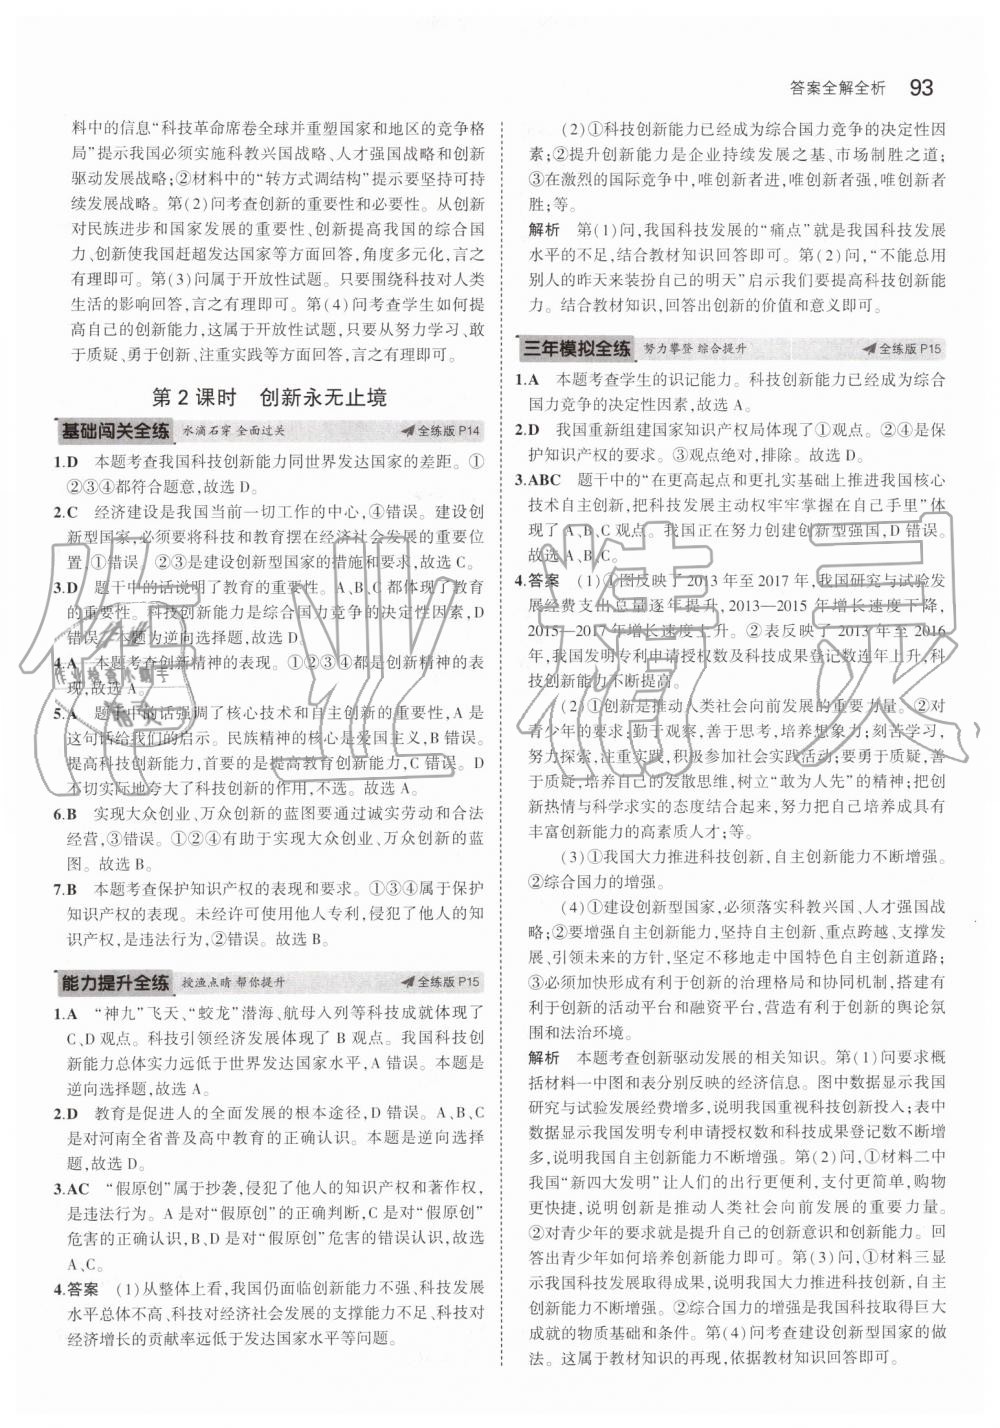 答案全解全析 93
料中的信息“科技革命席卷全球并重塑国家和地区的竞争格
局”提示我国必须实施科教兴国战略、人才强国战略和创新
驱动发展战略;②材料中的“转方式调结构”提示要坚持可持
续发展战略。第(2)问考查创新的重要性和必要性。从创新
对民族进步和国家发展的重要性、创新提高我国的综合国
力、创新使我国赶超发达国家等方面回答,角度多元化,言之
有理即可。第(3)问属于开放性试题。只要围绕科技对人类
生活的影响回答,言之有理即可。第(4)问考查学生如何提
高自己的创新能力,这属于开放性试题,只要从努力学习、敢
于质疑、勇于创新、注重实践等方面回答,言之有理即可。
第2课时 创新永无止境
基础闯关全练 水滴石穿 全面过关 全练版P14
1.D 本题考查我国科技创新能力同世界发达国家的差距。①
②③④都符合题意,故选D。
2.C 经济建设是我国当前一切工作的中心,④错误。建设创
新型国家,必须要将科技和教育摆在经济社会发展的重要位
置,①错误。②③是建设创新型国家的措施和要求,故选C。
3.D 题干中的话说明了教育的重要性。A、B、C都体现了教育
的重要性。科技创新能力是综合国力竞争的决定性因素,D
错误。本题为逆向选择题,故选D。
4.A 本题考查创新精神的表现。①②③④都是创新精神的表
现,故选A。
5.A 题干中的话强调了核心技术和自主创新的重要性,A是
这句话给我们的启示。民族精神的核心是爱国主义,B错误。
提高科技创新能力,首要的是提高教育创新能力,C错误。D
不切实际地夸大了科技创新的作用,不选。故选A。
6.B 实现大众创业、万众创新的蓝图要通过诚实劳动和合法
经营,③错误。①②④有助于实现大众创业、万众创新的蓝
图。故选B。
7.B 本题考查保护知识产权的表现和要求。①③④属于保护
知识产权的表现。未经许可使用他人专利,侵犯了他人的知
识产权,是违法行为,②错误。故选B。
能力提升全练 授渔点睛 帮你提升 全练版P15
1.A “神九”飞天、“蛟龙”潜海、航母入列等科技成就体现了
C、D观点。科技引领经济发展体现了B观点。我国科技创
新能力总体实力远低于世界发达国家水平,A错误。本题是
逆向选择题,故选A。
2.D 教育是促进人的全面发展的根本途径,D错误。A、B、C
是对河南全省普及高中教育的正确认识。本题是逆向选择
题,故选D。
3.AC “假原创”属于抄袭,侵犯了他人的知识产权和著作权,
是违法行为。A是对“假原创”的正确判断,C是对“假原创”
危害的正确认识,B、D是对“假原创”危害的错误认识,故选
A、C。
4.答案 (1)从整体上看,我国仍面临创新能力不强,科技发展
水平总体不高,科技对经济社会发展的支撑能力不足,科技对
经济增长的贡献率远低于发达国家水平等问题。
(2)①科技创新能力已经成为综合国力竞争的决定性因
素;②提升创新能力是企业持续发展之基、市场制胜之道;
③在激烈的国际竞争中,唯创新者进,唯创新者强,唯创新者
胜;等。
解析 第(1)问,我国科技发展的“痛点”就是我国科技发展
水平的不足,结合教材知识回答即可。第(2)问,“不能总用
别人的昨天来装扮自己的明天”启示我们要提高科技创新能
力。结合教材知识,回答出创新的价值和意义即可。
三年模拟全练 努力攀登 综合提升 全练版P15
1.A 本题考查学生的识记能力。科技创新能力已经成为综合
国力竞争的决定性因素,故选A。
2.D 我国重新组建国家知识产权局体现了①观点。②④是保
护知识产权的要求。③观点绝对,排除。故选D。
3.ABC 题干中的“在更高起点和更扎实基础上推进我国核心
技术自主创新,把科技发展主动权牢牢掌握在自己手里”体
现了A、B、C观点。我国正在努力创建创新型强国,D错误。
故选A、B、C。
4.答案 (1)①图反映了2013年至2017年,我国研究与试验发
展经费支出总量逐年提升,2013—2015年增长速度下降,
2015—2017年增长速度上升。②表反映了2013年至2016
年,我国发明专利申请授权数及科技成果登记数连年上升,科
技创新能力不断提高。
(2)①创新是推动人类社会向前发展的重要力量。②对
青少年的要求;勤于观察,善于思考,培养想象力;刻苦学习,
努力探索,注重实践,积极参加社会实践活动;要勇于质疑,善
于质疑,培养自己的发散思维,树立“敢为人先”的精神;把创
新热情与科学求实的态度结合起来,努力把自己培养成具有
丰富创新能力的高素质人才;等。
(3)①我国大力推进科技创新,自主创新能力不断增强。
②综合国力的增强。
(4)①建设创新型国家,必须落实科教兴国、人才强国战
略;②要增强自主创新能力,坚持自主创新、重点跨越、支撑发
展、引领未来的方针,坚定不移地走中国特色自主创新道路;
③必须加快形成有利于创新的治理格局和协同机制,搭建有
利于创新的活动平台和融资平台,营造有利于创新的舆论氛
围和法治环境。
解析 本题考查创新驱动发展的相关知识。第(1)问要求概
括材料一中图和表分别反映的经济信息。图中数据显示我国
研究与试验发展经费增多,说明我国重视科技创新投入;表中
数据显示我国发明专利申请授权数和科技成果登记数不断增
多,说明我国自主创新能力不断增强。第(2)问,①材料二中
我国“新四大发明”让人们的出行更便利,支付更简单,购物
更快捷,说明创新是推动人类社会向前发展的重要力量。
②对青少年的要求就是提升自己的创新意识和创新能力。回
答出青少年如何培养创新能力即可。第(3)问,①材料三显
示我国科技发展取得成果,说明我国大力推进科技创新,自主
创新能力不断增强。②综合国力的增强是我国科技取得巨大
成就的物质基础和条件。第(4)问考查建设创新型国家的做
法。这属于教材知识的再现,依据教材知识回答即可。
作业精灵
作业检查小助手